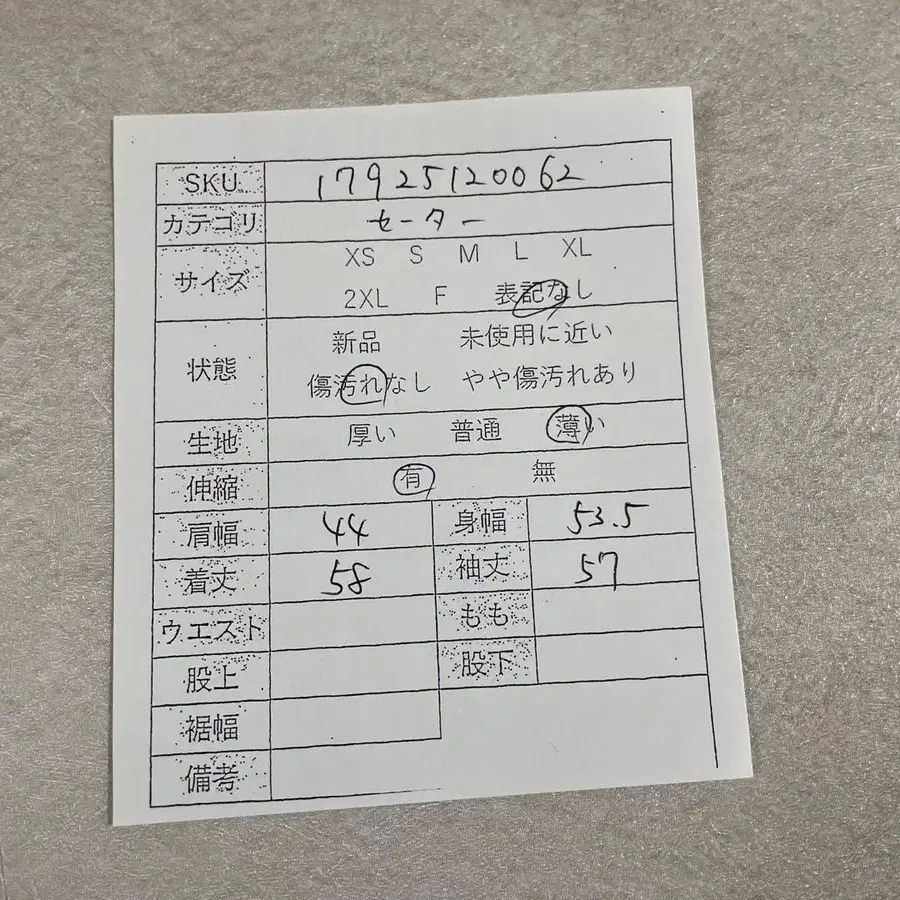 SKU 17925120062
カテゴリ セーター
サイズ XS S M L XL
2XL F 表記なし
状態 新品 未使用に近い
傷汚れなし やや傷汚れあり
生地 厚い 普通 薄い
伸縮 有 無
肩幅 44 身幅 53.5
着丈 58 袖丈 57
ウエスト もも
股上 股下
裾幅
備考